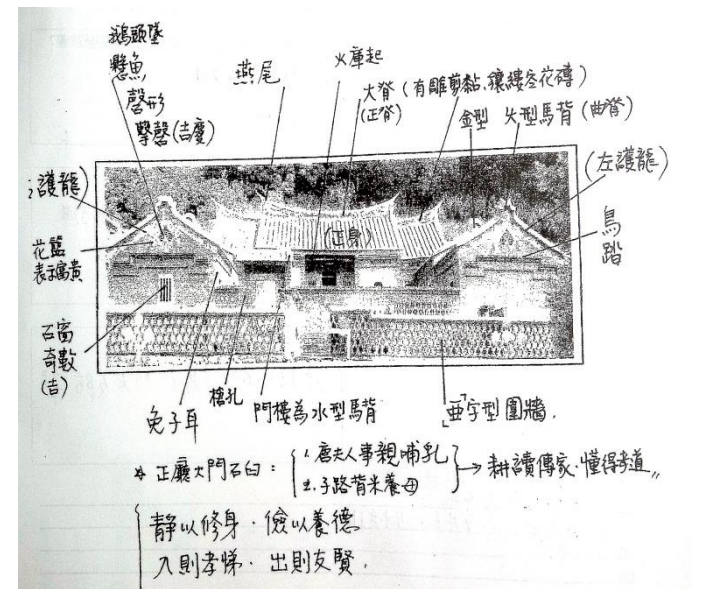 鵝頭墜
懸魚
磬形
擊磬(吉慶)
燕尾
火庫起
大脊(有雕剪黏、鏤空花磚)
(正脊)
金型
火型馬背(曲脊)
護龍)
(左護龍)
(正身)
鳥
踏
花籃
表示富貴
石窗
奇數
(吉)
兔子耳
槍孔
門樓為水型馬背
「亞」字型圍牆.
* 正廳大門石臼:
1.唐夫人事親哺乳
2.子路背米養母
→ 耕讀傳家.懂得孝道〃
靜以修身.儉以養德
入則孝悌.出則友賢.